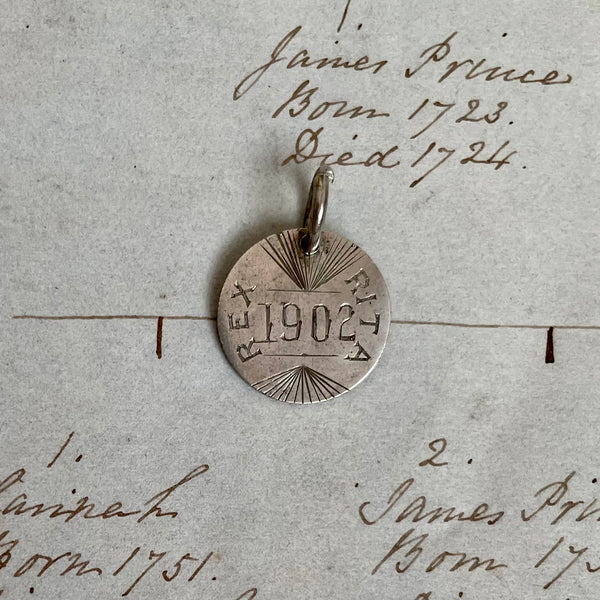 James Prince
Born 1723.
Died 1724.
REX 1902 RITA
1.
2.
Hannah
Born 1751.
James
Born